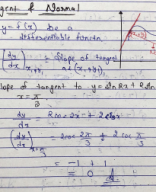 Tangent & Normal
y = f(x) be a
differentiable function
(dy/dx) x₁,y₁ = slope of tangent
at (x₁, y₁)
slope of tangent to y = sin 2x + 2 sin
x = π/3
dy/dx = 2 cos 2x + 2 cos x
(dy/dx) x=π/3 = 2 cos 2π/3 + 2 cos π/3
= -1 + 1
= 0